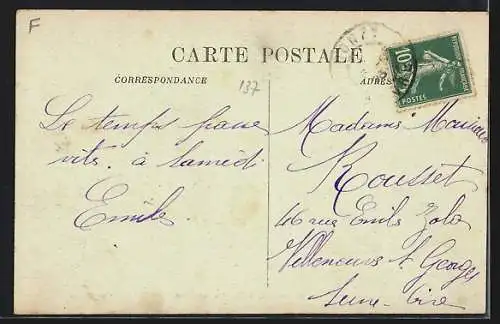 F
CARTE POSTALE
CORRESPONDANCE
137
ADRES
10c
POSTES
Le temps passe
vite. à Samedi
Emile.
Madame
Rousset
46 rue Emile Zola
Villeneuve St Georges
Seine-Oise